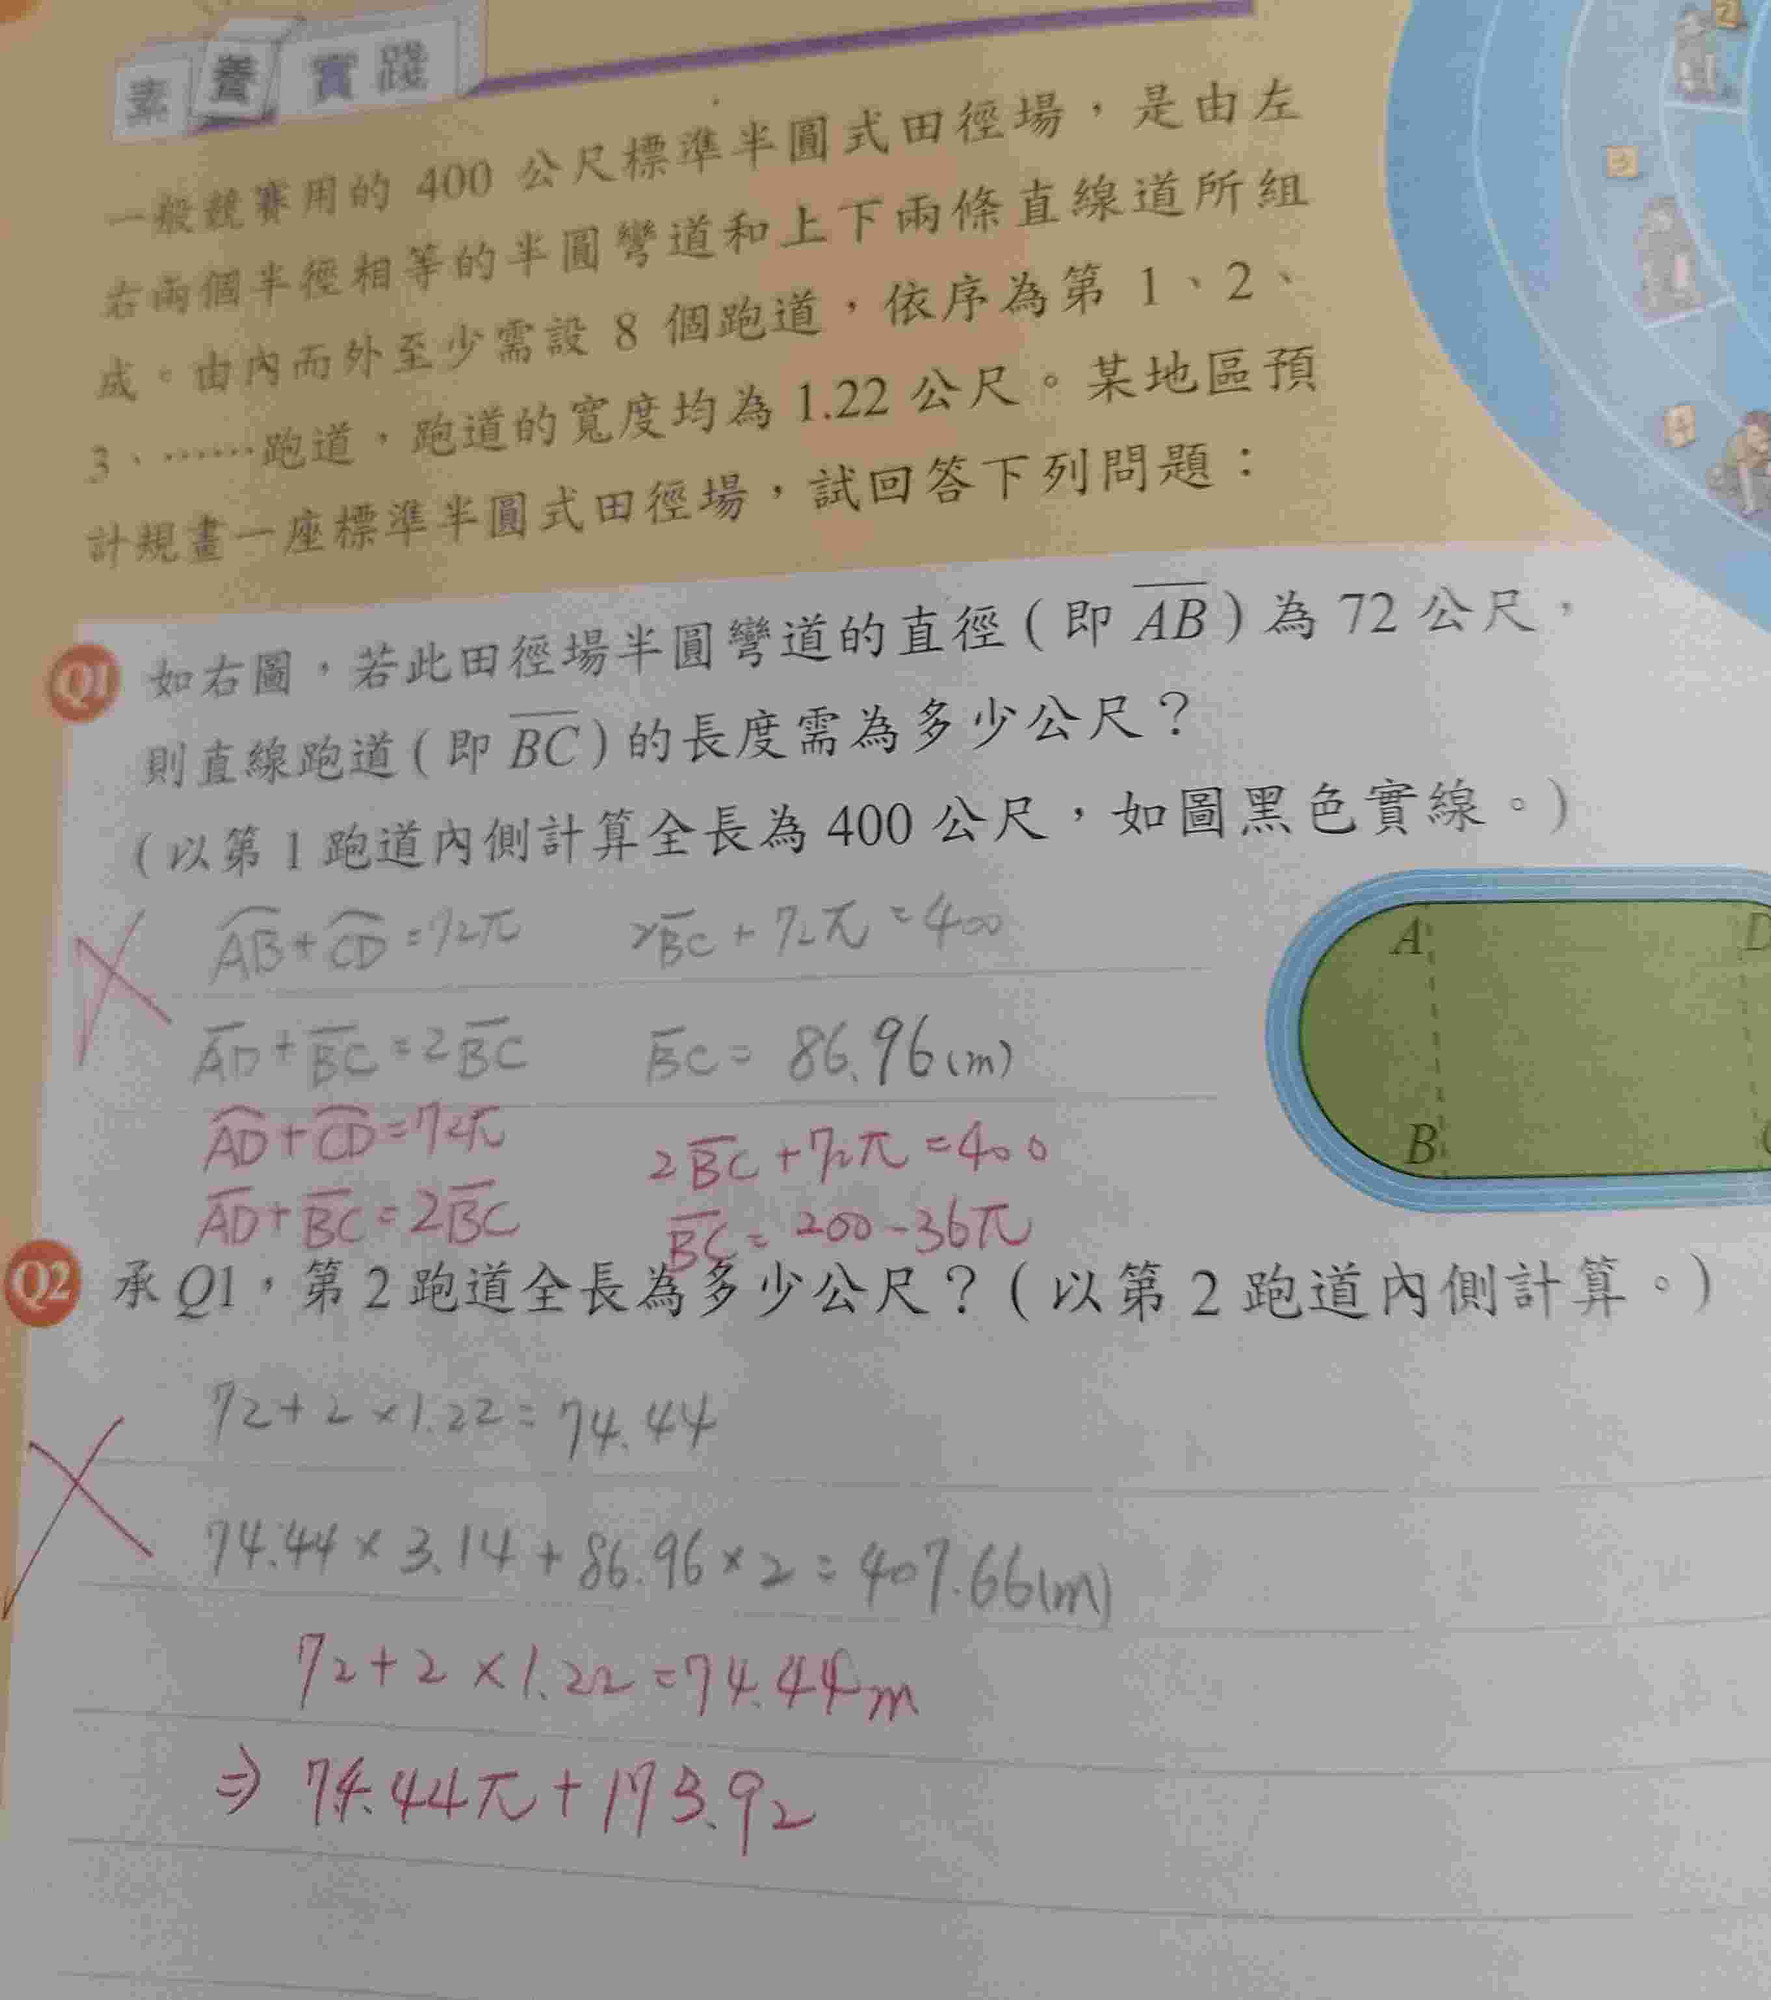 素養實踐
一般競賽用的 400 公尺標準半圓式田徑場，是由左
右兩個半徑相等的半圓彎道和上下兩條直線道所組
成。由內而外至少需設 8 個跑道，依序為第 1、2、
3、……跑道，跑道的寬度均為 1.22 公尺。某地區預
計規畫一座標準半圓式田徑場，試回答下列問題：
2
3
4
Q1 如右圖，若此田徑場半圓彎道的直徑（即 \overline{AB}）為 72 公尺，
則直線跑道（即 \overline{BC}）的長度需為多少公尺？
（以第 1 跑道內側計算全長為 400 公尺，如圖黑色實線。）
\overset{\frown}{AB}+\overset{\frown}{CD}=72π 2\overline{BC}+72π=400
\overline{AD}+\overline{BC}=2\overline{BC} \overline{BC}=86.96(m)
\overset{\frown}{AD}+\overset{\frown}{CD}=72π 2\overline{BC}+72π=400
\overline{AD}+\overline{BC}=2\overline{BC} \overline{BC}=200-36π
A
D
B
C
Q2 承 Q1，第 2 跑道全長為多少公尺？（以第 2 跑道內側計算。）
72+2×1.22=74.44
74.44×3.14+86.96×2=407.66(m)
72+2×1.22=74.44m
⇒ 74.44π+173.92